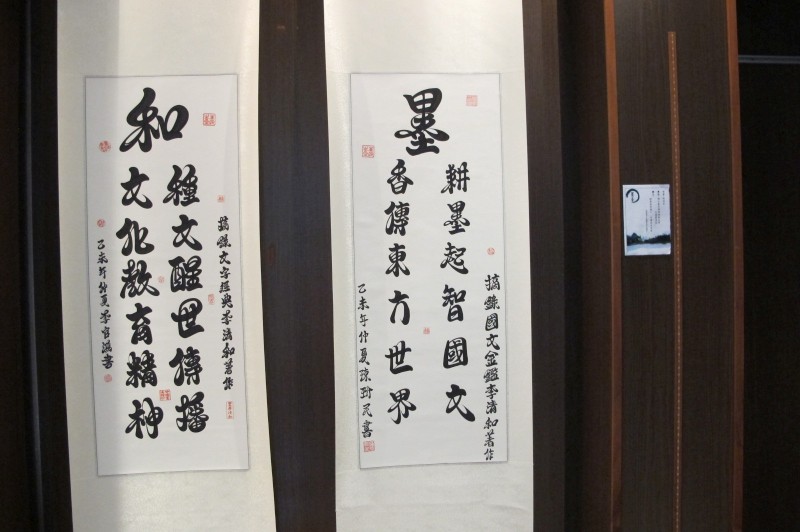 墨
耕墨起智國文
香傳東方世界
摘錄國文金鑑李清和著作
乙未年仲夏陳
民書
和
種文醒世傳播
文化教育精神
摘錄文字經典李清和著作
乙未年仲夏李官
書